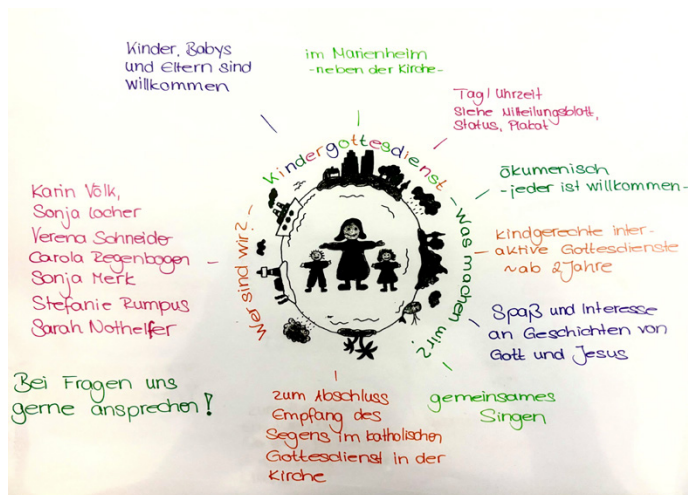 Kinder, Babys
und Eltern sind
willkommen
im Marienheim
-neben der Kirche-
Tag/Uhrzeit
siehe Mitteilungsblatt,
Status, Plakat
ökumenisch
-jeder ist willkommen-
kindgerechte inter-
aktive Gottesdienste
~ab 2 Jahre
Spaß und Interesse
an Geschichten von
Gott und Jesus
gemeinsames
Singen
zum Abschluss
Empfang des
Segens im katholischen
Gottesdienst in der
Kirche
Karin Völk,
Sonja Locher
Verena Schneider
Carola Regenbogen
Sonja Merk
Stefanie Rumpus
Sarah Nothelfer
Bei Fragen uns
gerne ansprechen!
Wer sind wir? - Kindergottesdienst - Was machen wir?